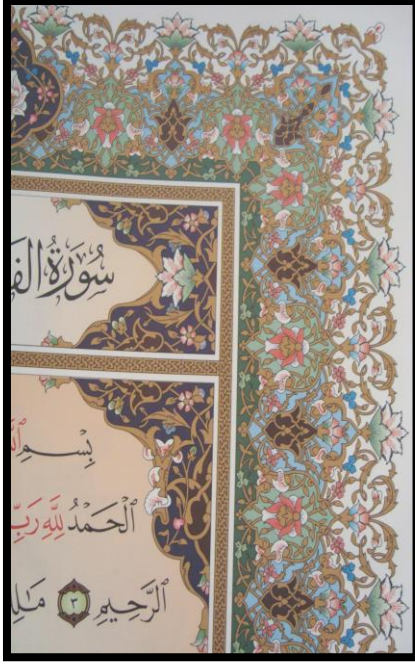 سُورَةُ الفَ
بِسْمِ ٱللَّ
ٱلْحَمْدُ لِلَّهِ رَبِّ
ٱلرَّحِيمِ ٣ مَٰلِ